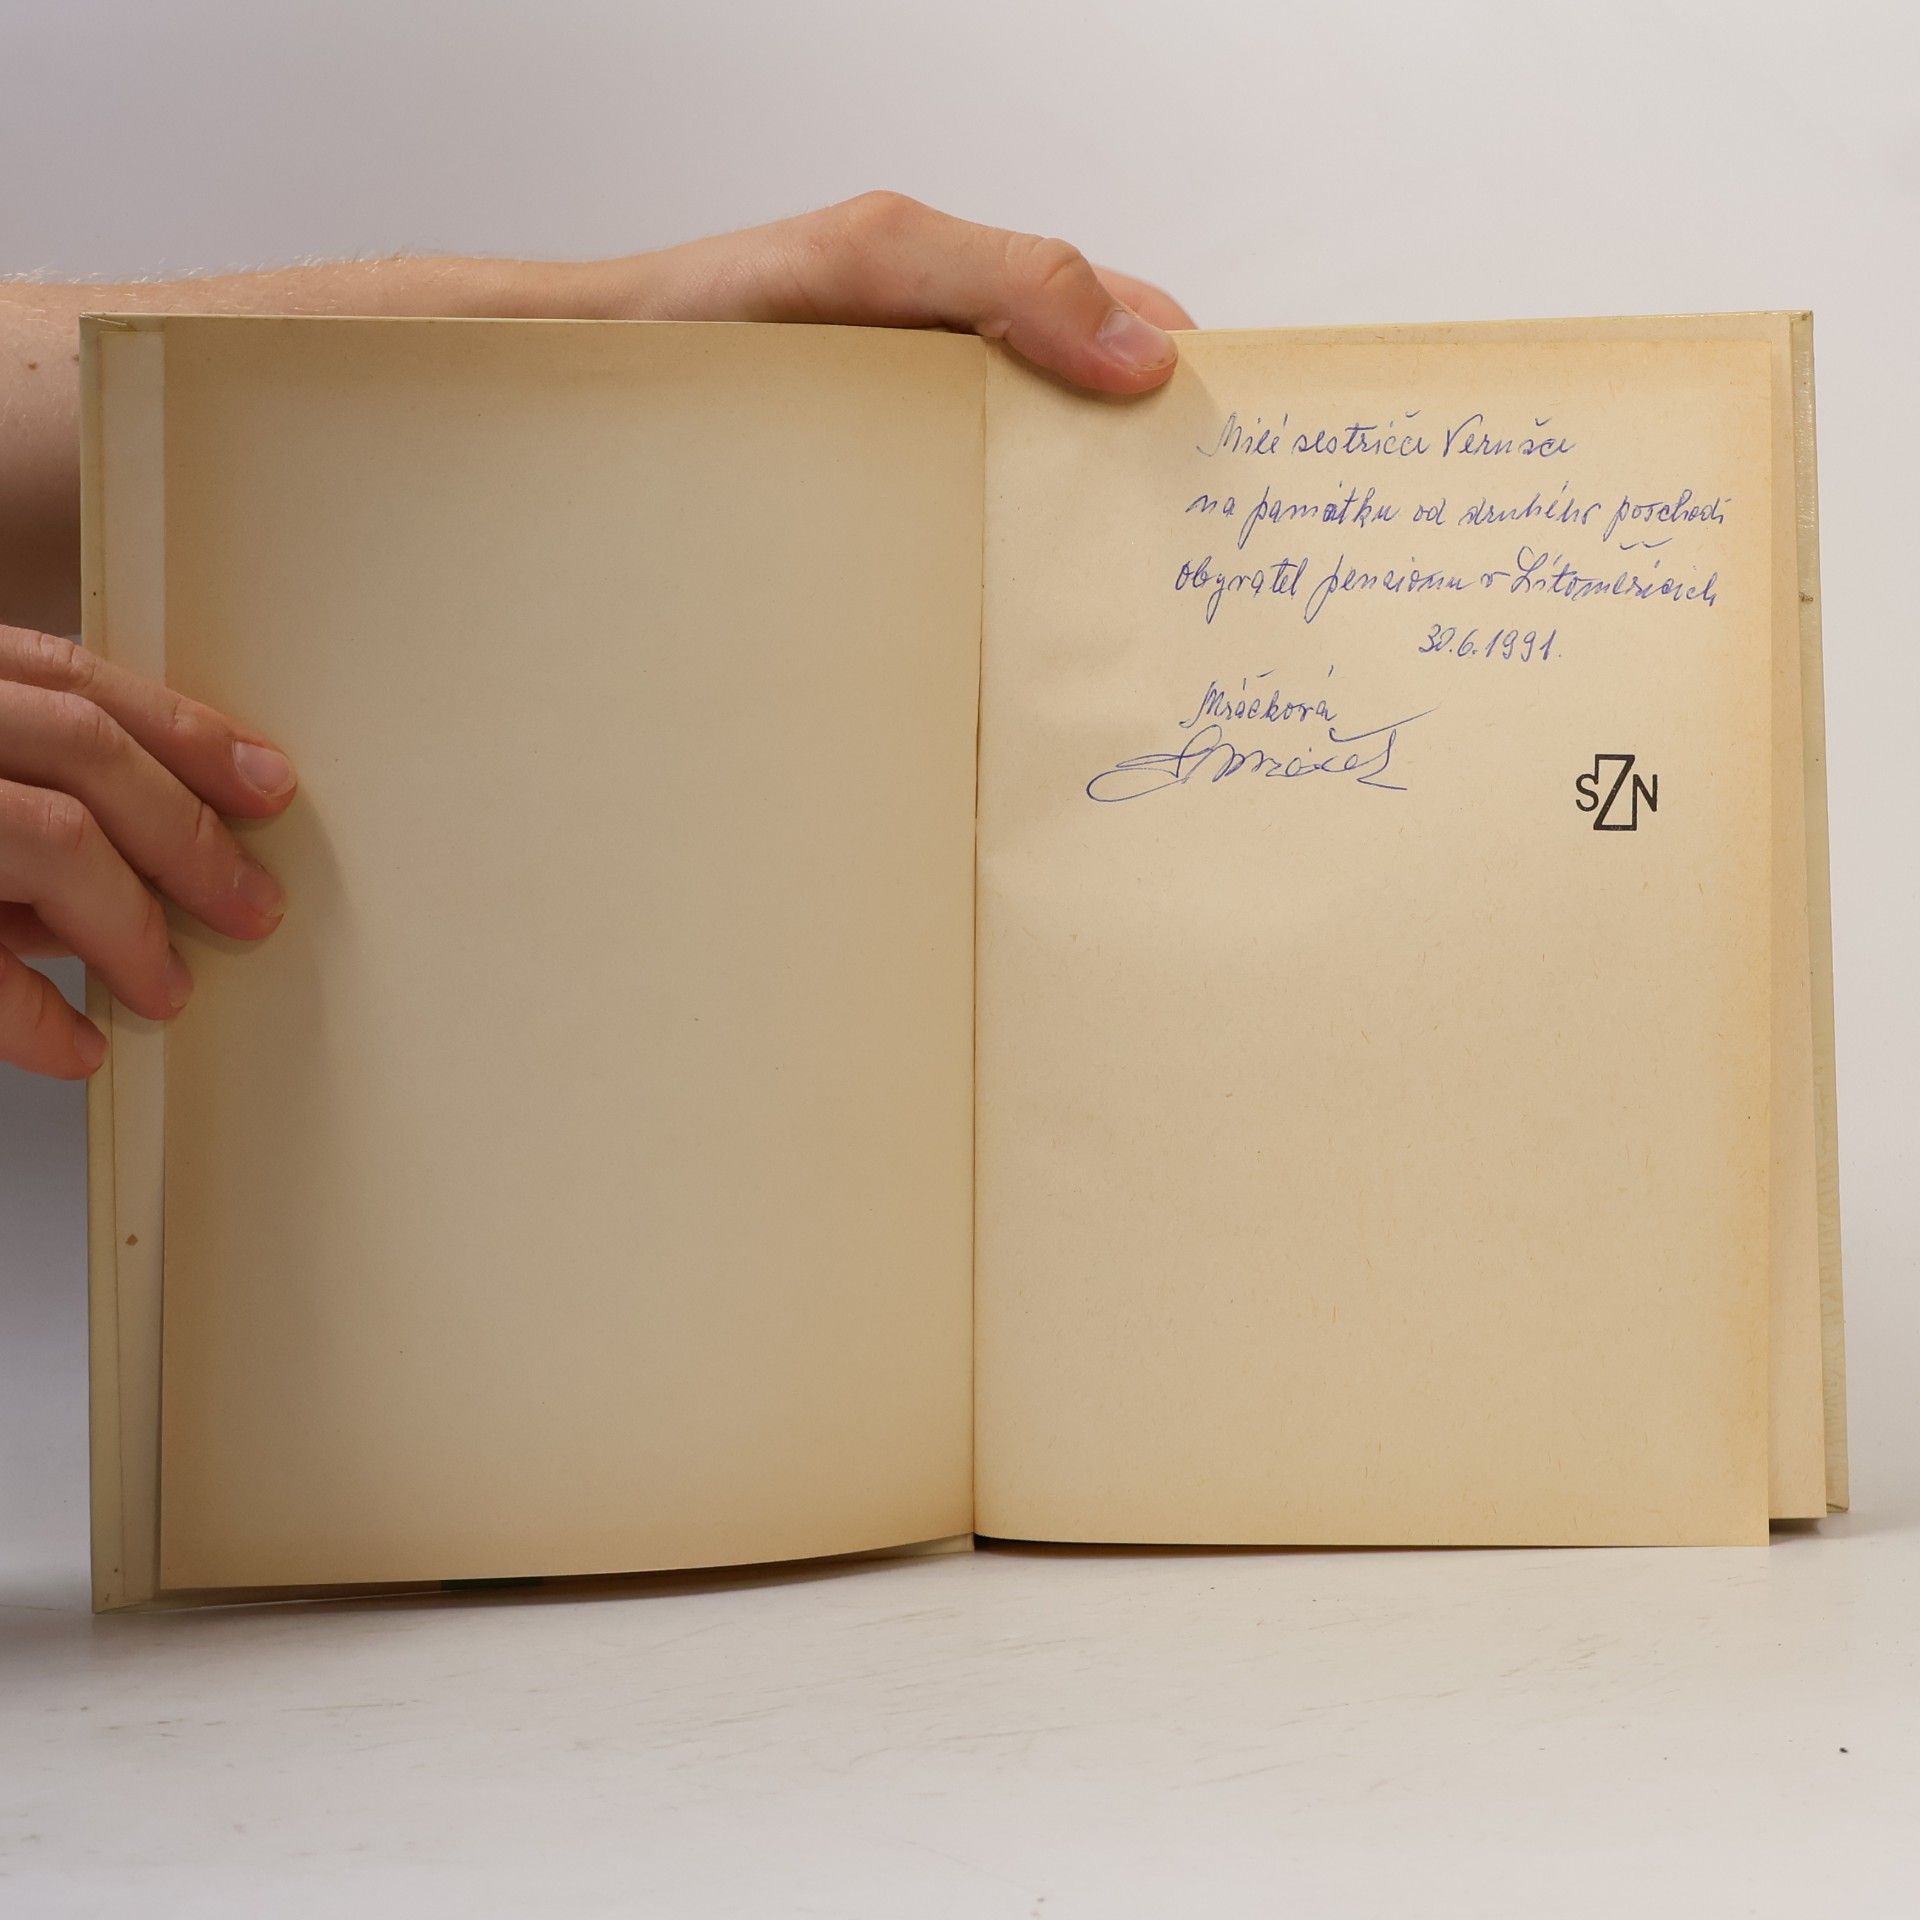 Milé sestřičce Verušce
na památku od druhého poschodí
obyvatel pensionu v Litoměřicích
30.6.1991.
Mráčková
Mráček
SZN